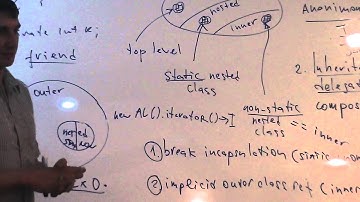 int K;
friend
outer
nested
inner
top level
static nested
class
new AL().iterator() → I
non-static
nested
class
== inner
1. break incapsulation (static
2 implicid outor class ref (inner
Anonimou
2. Inherita
delegat
compos